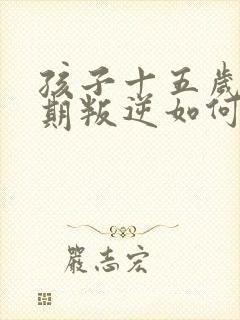 孩子十五歲
期叛逆如何
嚴志宏